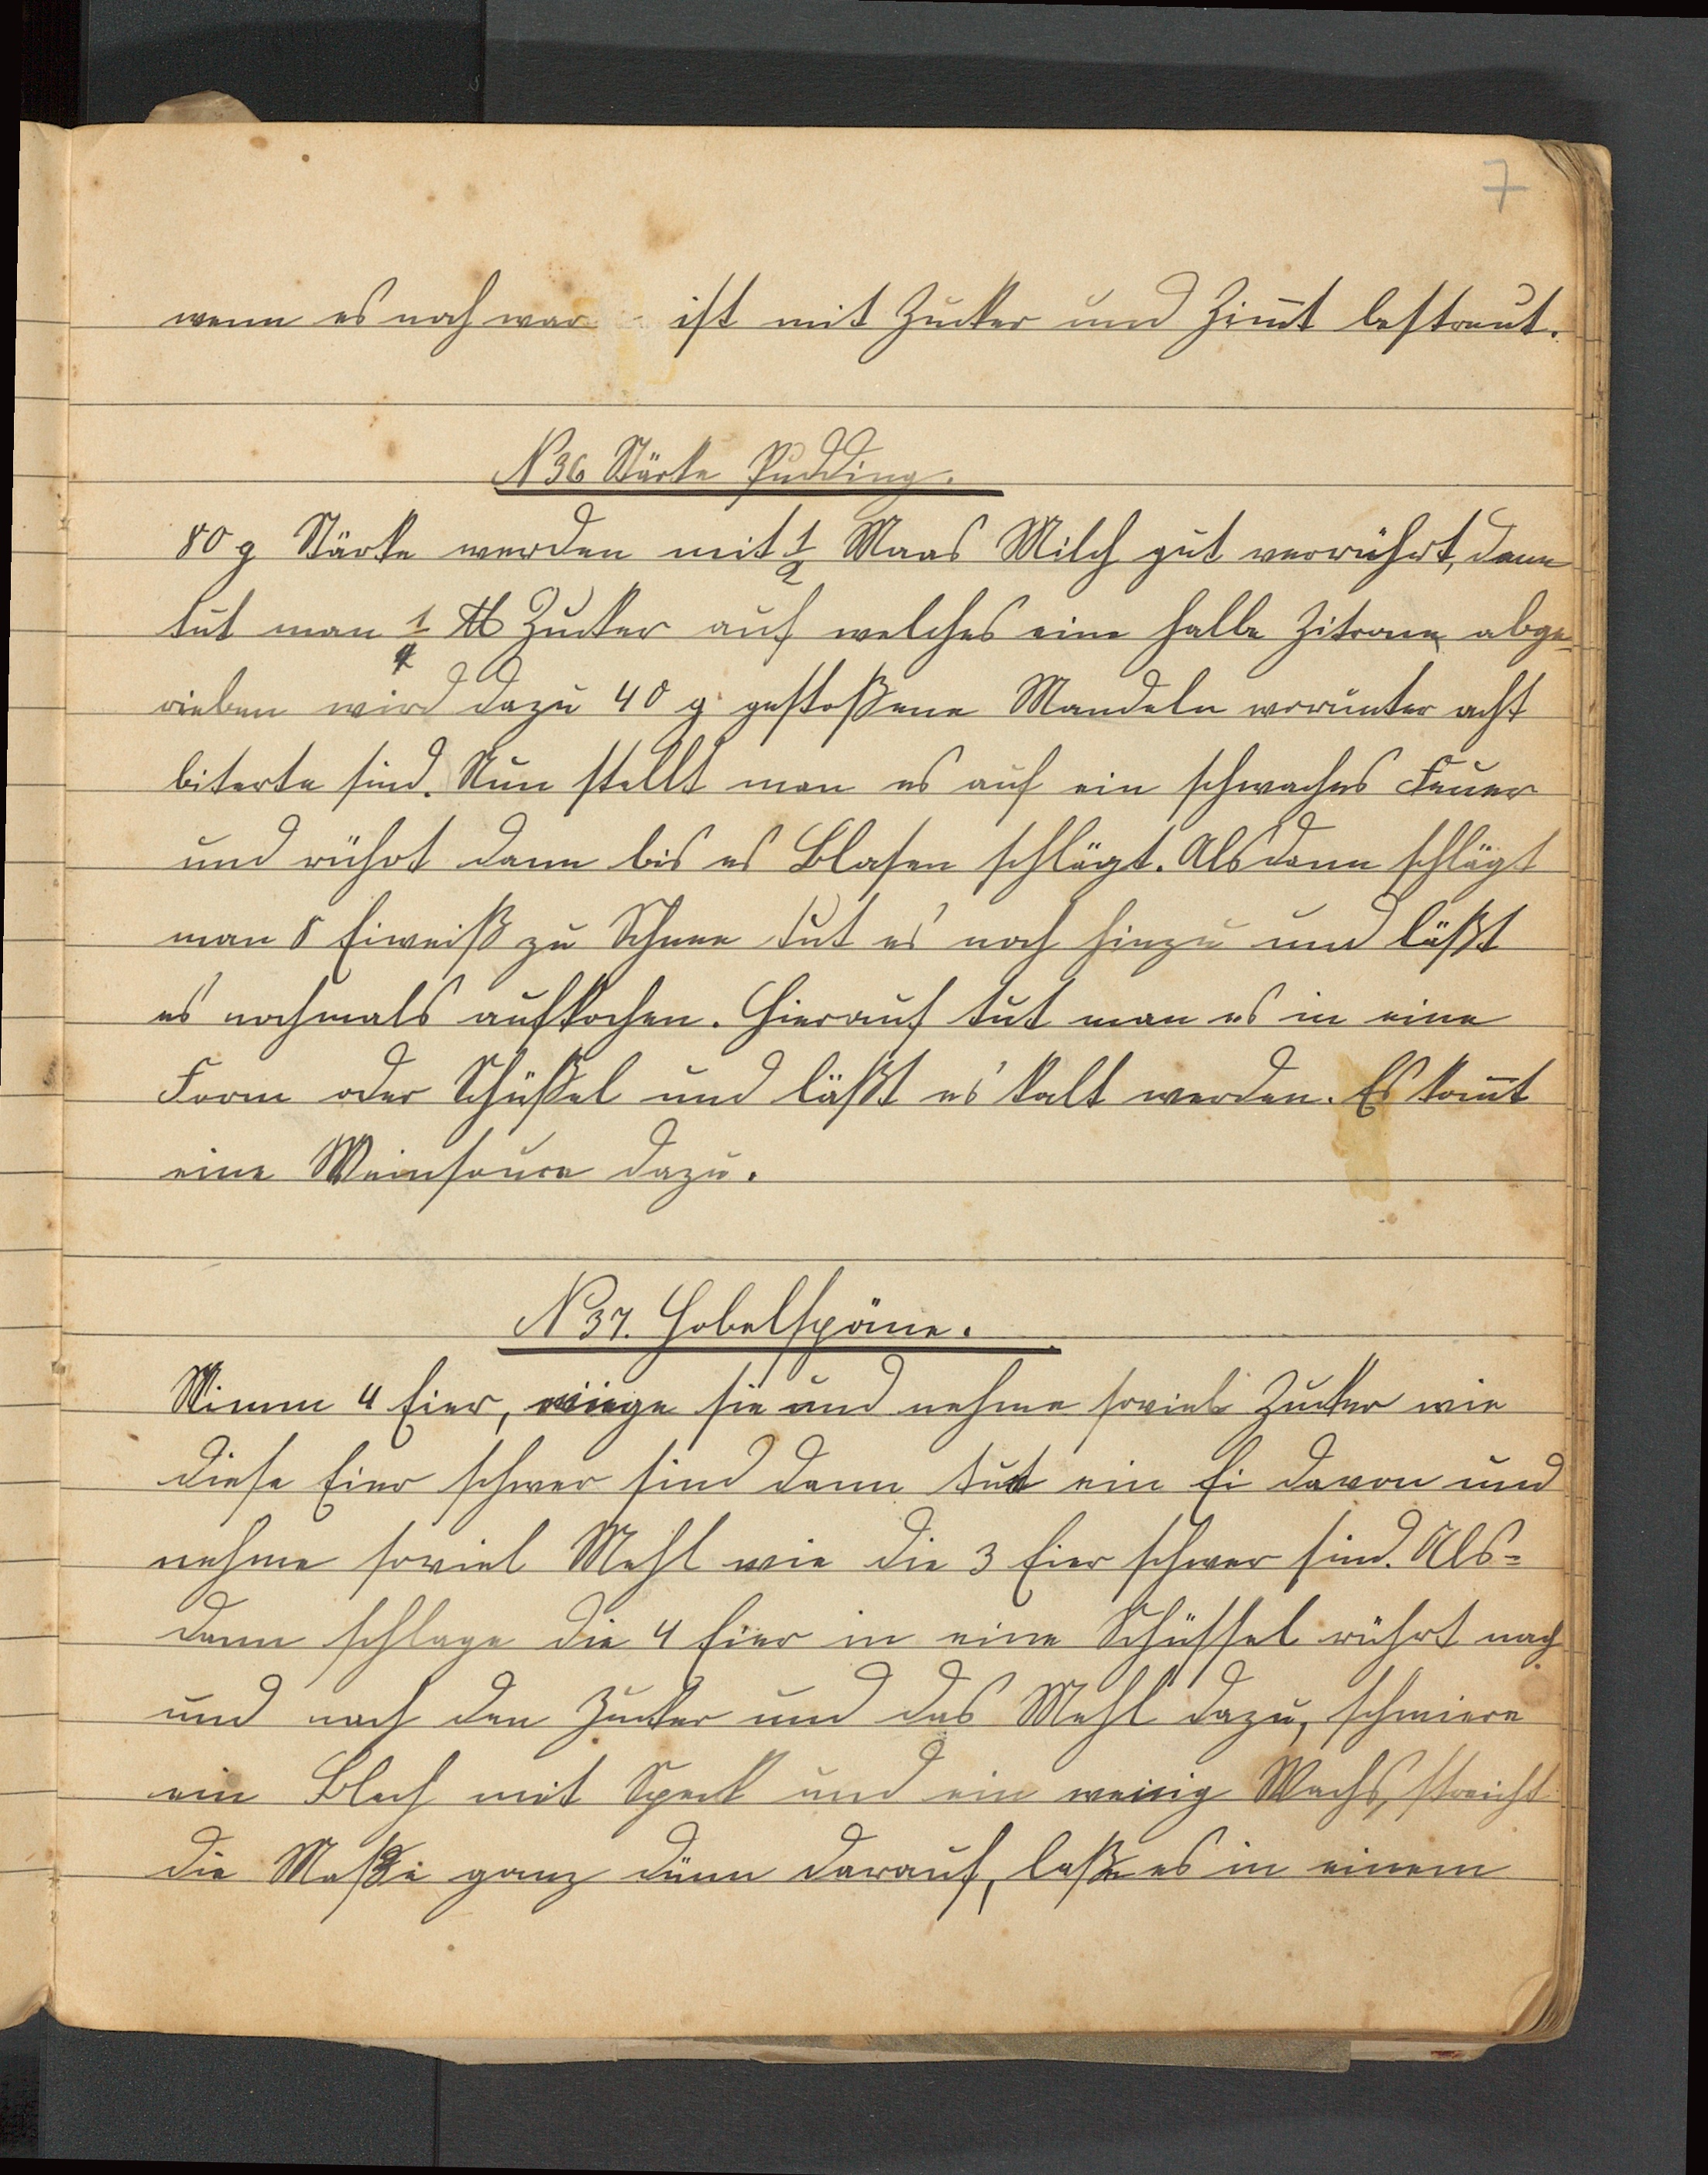 7
wenn es noch war ist mit Zucker und Zim̅t bestreut.
N 36 Stärke Pudding.
80 g Stärke werden mit 1/2 Maas Milch gut verrührt, dann
tut man 1/4 ℔ Zucker auf welches eine halbe Zitrone abge-
rieben wird dazu 40 g gestoßene Mandeln worunter acht
biterte sind. Nun stellt man es auf ein schwaches Feuer
und rührt dann bis es Blasen schlägt. Alsdann schlägt
man 8 Eiweiß zu Schnee tut es noch hinzu und läßt
es nochmals aufkochen. Hierauf tut man es in eine
Form oder Schüßel und läßt es kalt werden. Es kom̅t
eine Weinsauce dazu.
N 37. Hobelspäne.
Nimm 4 Eier, wiege sie und nehme soviel Zucker wie
diese Eier schwer sind dann tut ein Ei davon und
nehme soviel Mehl wie die 3 Eier schwer sind. Als=
dann schlage die 4 Eier in eine Schüssel rührt nach
und nach den Zucker und das Mehl dazu, schmiere
ein Blech mit Speck und ein wenig Wachs, streicht
die Maße ganz dünn darauf, laße es in einem